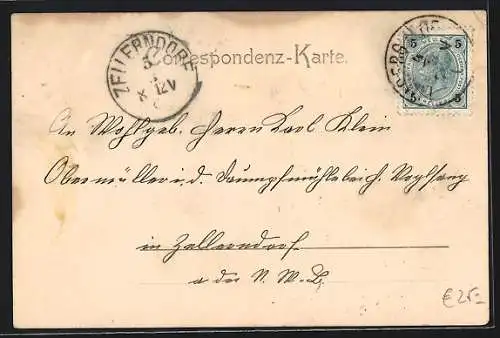 Correspondenz-Karte.
ZELLERNDORF
5
X 12V
5 5
An Wohlgeb. Herrn Karl Klein
Obermüller i. d. Dampfmühle
in Zellerndorf
a der N. W. B.
€ 25.-